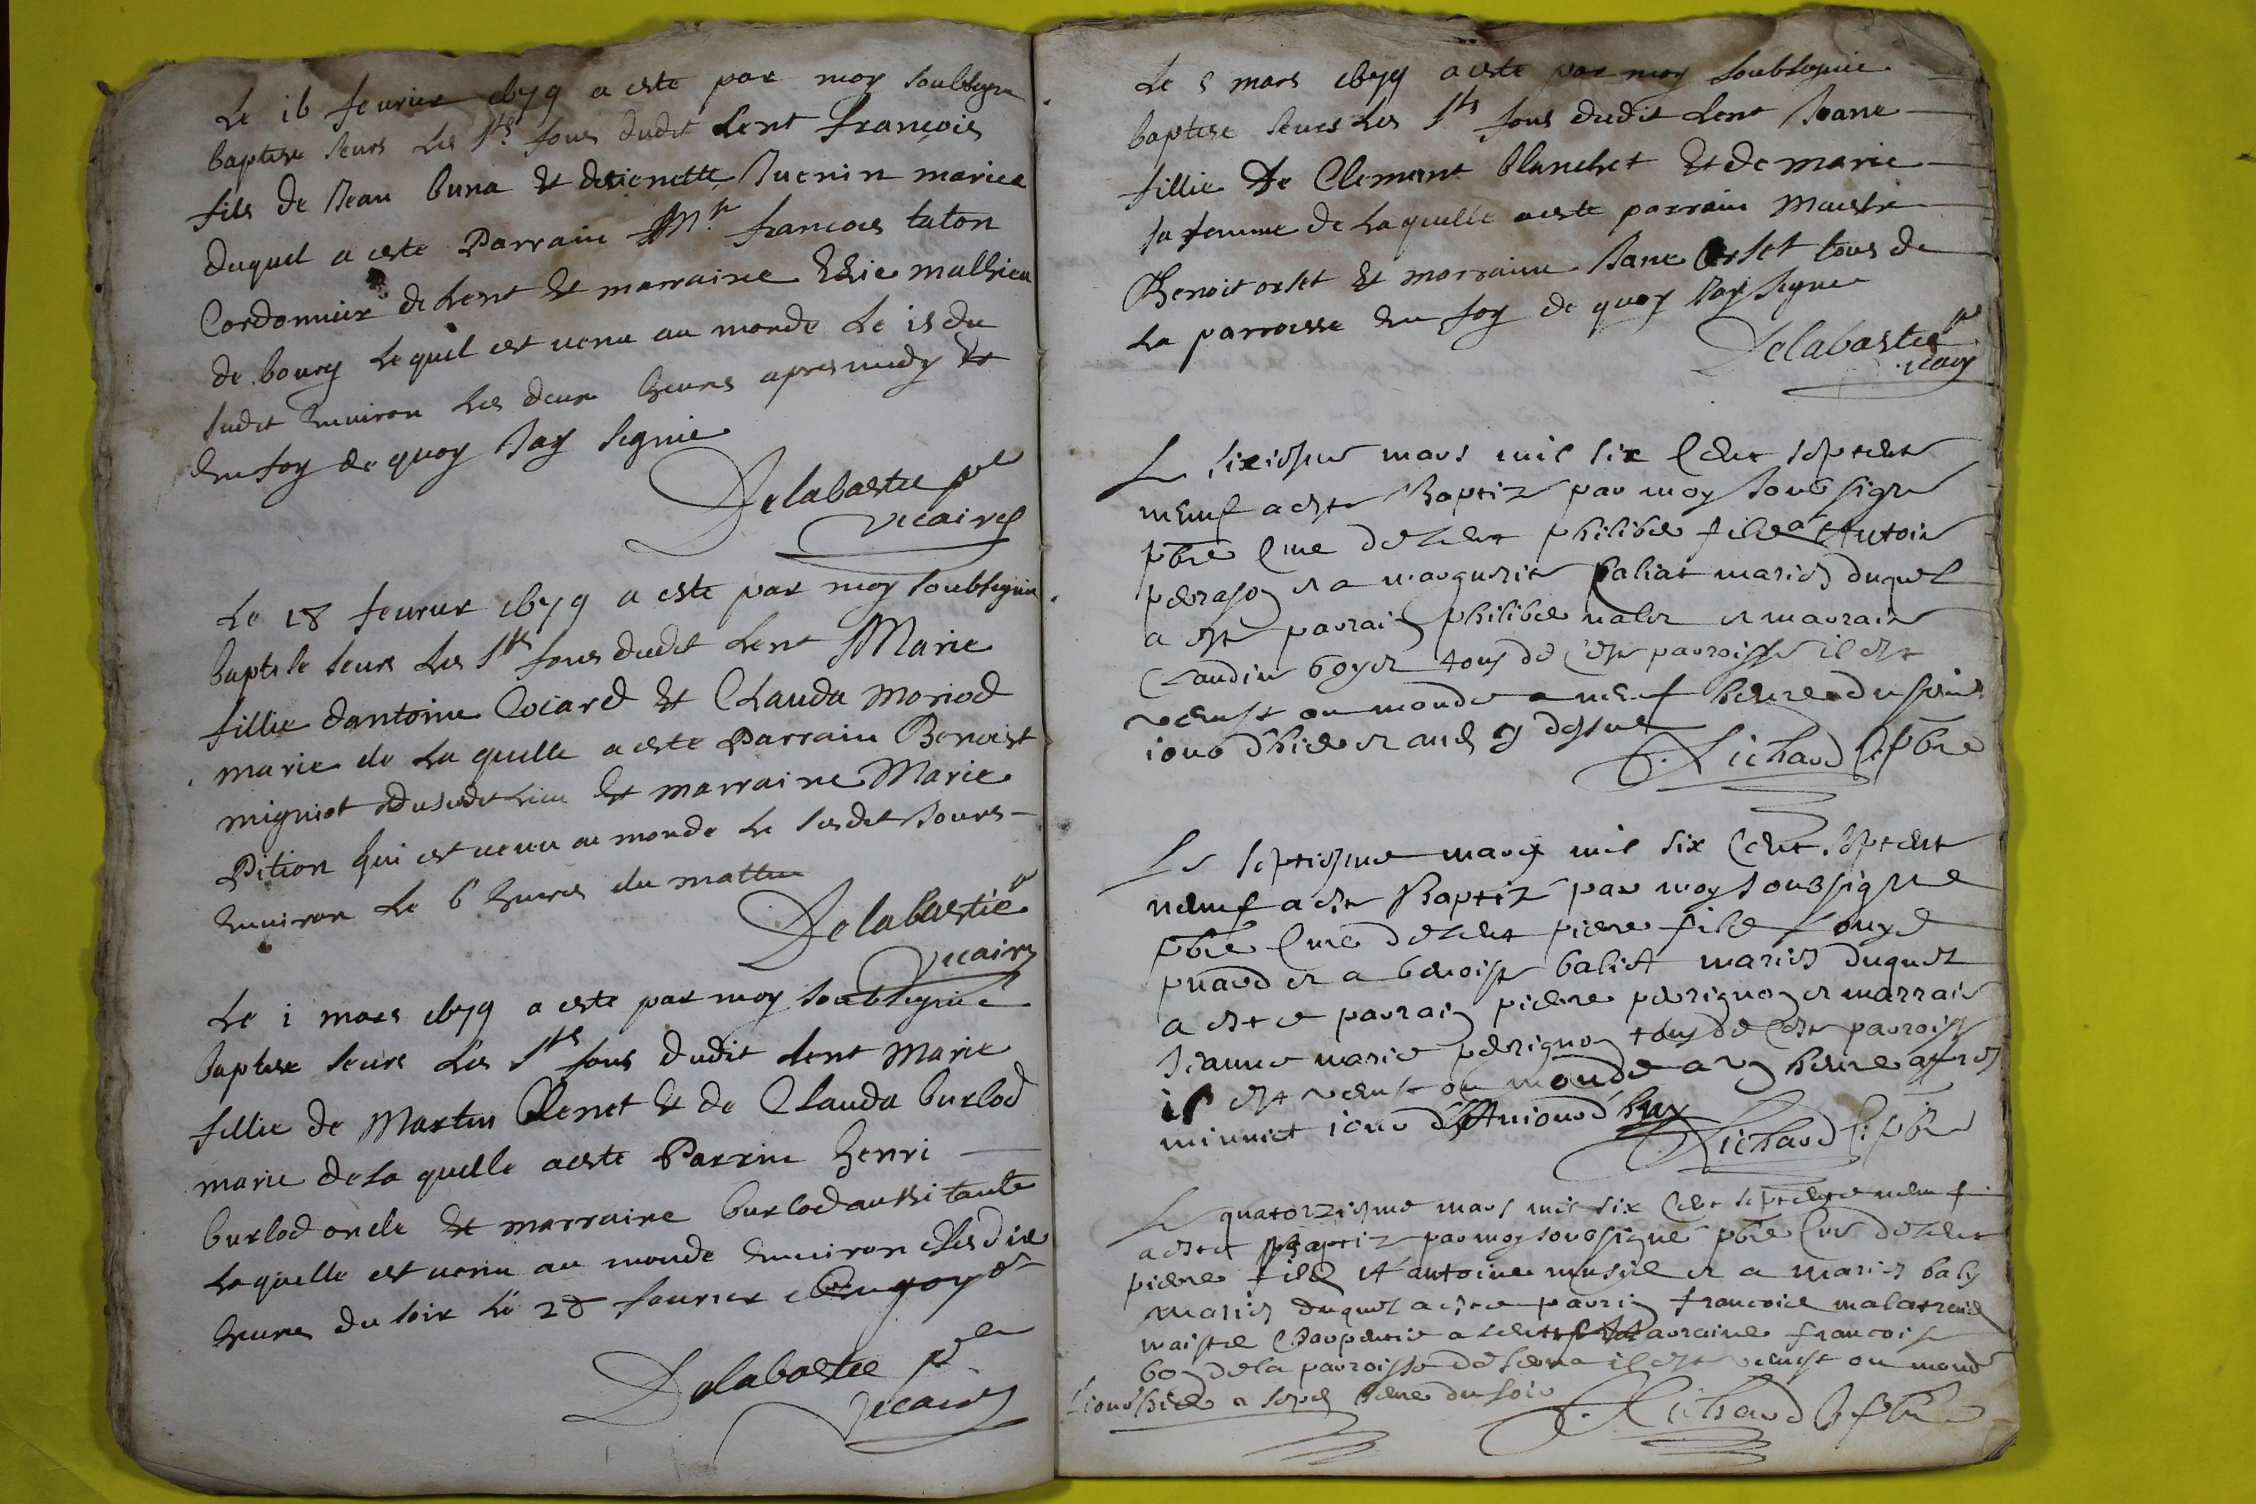 Le 16 feurier 1679 a este par moy soubsegne
baptise seurs les Sts fons dudit Lent françois
fils de Jean buna et desienette Juenin maries
duquel a este Parrain Mr françois taton
Cordonnier de Lent et marraine mathieu
de bourg lequel est venu au monde le 15 du
sudit enuiron les deux heures apres midy et
en foy de quoy Jay segnie
Delabastie pre
vicaire
Le 18 feurier 1679 a este par moy soubsegnie
baptise seurs les Sts fons dudit Lent Marie
fillie dantoine Cocard et Clauda moriod
marie de laquelle a este Parrain Benoist
migniot dusudit lieu et marraine Marie
Pition qui est venu au monde le susdit Jours
enuiron le 6 heures du mattin
Delabastie p
vicaire
Le 1 mars 1679 a este par moy soubsegnie
baptise seurs les Sts fons dudit Lent Marie
fillie de Martin Clenet et de Clauda burlod
marie de la quelle a este Parrin henri
burlod oncle et marraine burlod aussi tante
laquelle est venu au monde enuiron les dix
heures du soir le 28 feurier
Delabastie pre
vicaire
Le 5 mars 1679 a este par moy soubsegnie
baptise seurs les Sts fons dudit Lent Jeane
fillie de Clemant blanchet et de marie
sa femme de laquelle a este parrain Maistre
Benoit orset et marraine Jane Orset tous de
la parroisse en foy de quoy Jay segnie
Delabastie p
vicaire
Le sixiesme mars mil six Cent septente
neuf a este Baptize par moy soubsigne
pbre Cure de Lent philibe fils a Antoine
perason et a marguerite paliat maries duquel
a este parrain philibe et marraine
Claudine boyer tous de Ceste parroisse il est
venust au monde a neuf heures du soir
iour d'hier
J. Richard C. pbre
Le septiesme mars mil six Cent septente
neuf a este Baptize par moy soubsigne
pbre Cure de Lent pierre fils Louys
puard et a benoiste maries duquel
a este parrain pierre perignon et marraine
Jeanne marie perignon tous de Ceste parroisse
il est venust au monde a heure apres
minuict iour d'Auiourd'huy
J. Richard C. pbre
Le quatorziesme mars mil six Cent septente neuf
a este Baptize par moy soubsigne pbre Cure de Lent
pierre fils A antoine et a marie baly
maries duquel a este parrin francois
maistre Charpentier a Lent marraine francoise
boy de la parroisse de il est venust au monde
iour hier a sept heure du soir
J. Richard C. pbre